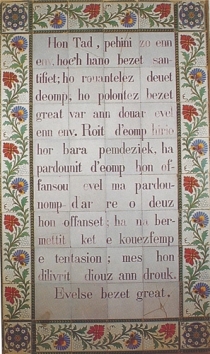 Hon Tad, pehini zo enn
env, hoc'h hano bezet san-
tifiet; ho rouantelez deuet
deomp, ho polontez bezet
great var ann douar evel
enn env. Roit d'eomp hirio
hor bara pemdeziek, ha
pardounit d'eomp hon of-
fansou evel ma pardou-
nomp d'ar re o deuz
hon offanset; ha na ber-
mettit ket e kouezfemp
e tentasion; mes hon
dilivrit diouz ann drouk.
Evelse bezet great.